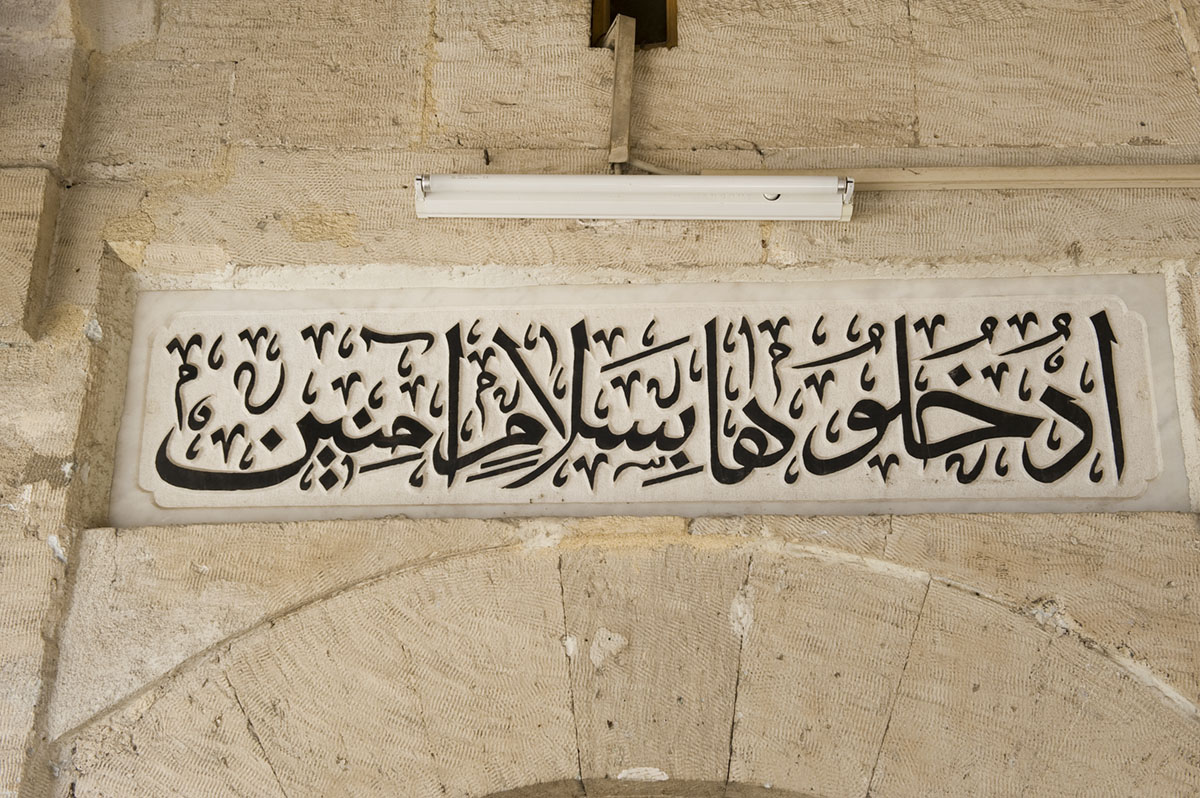 ادخلوها بسلام آمنين